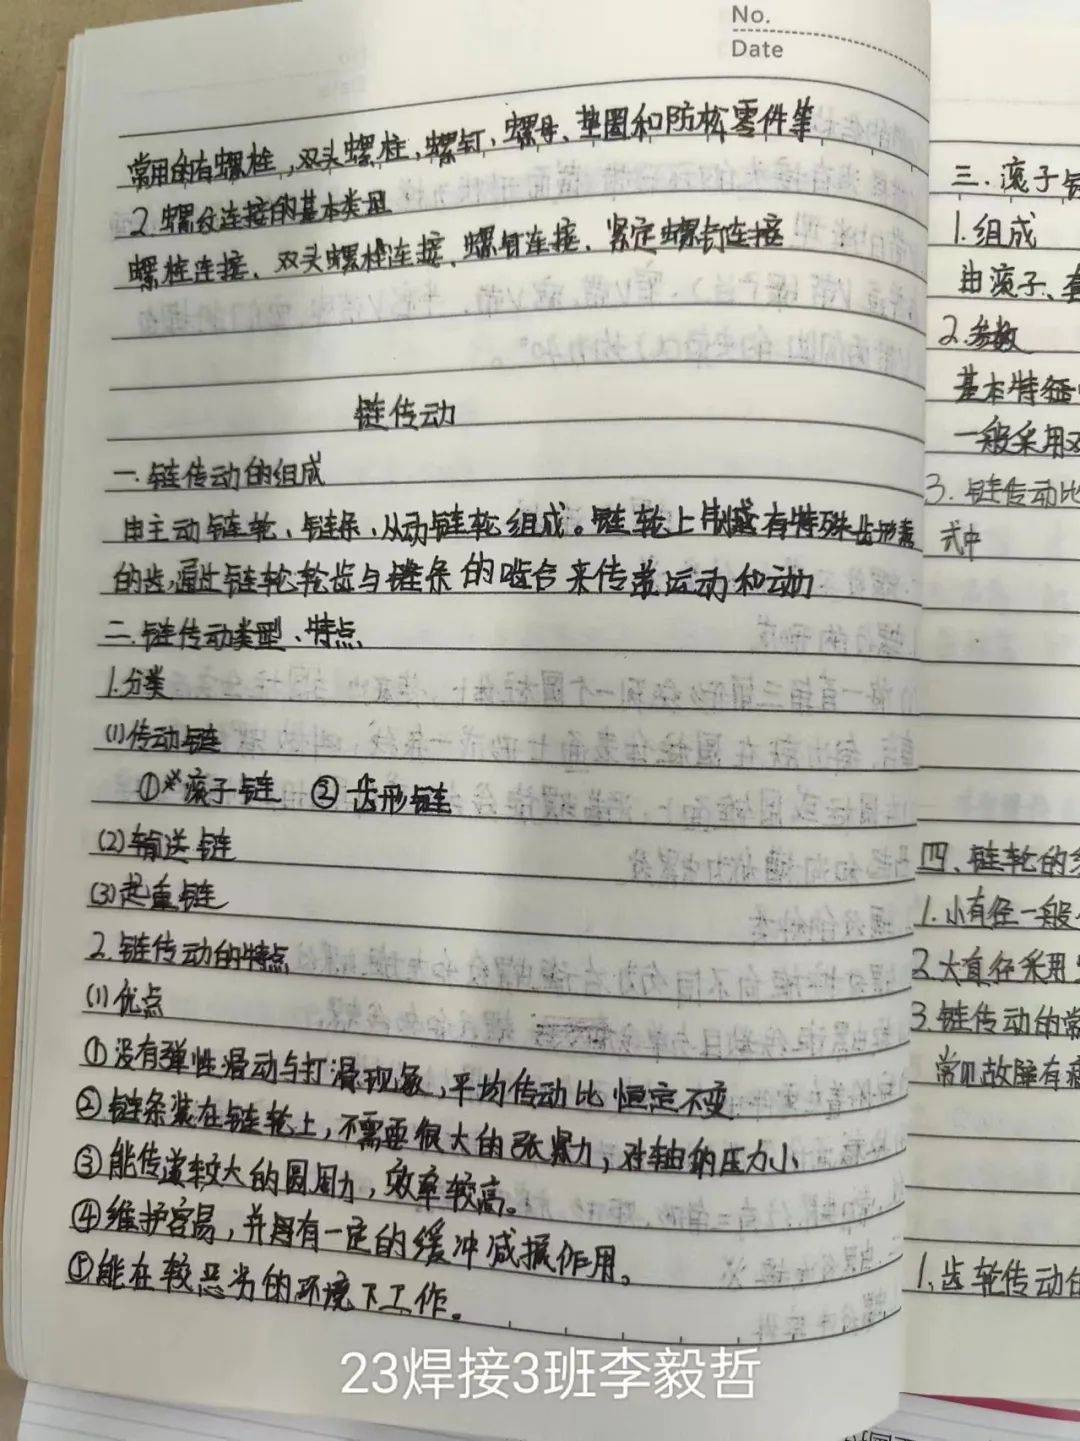 No.
Date
常用的有螺栓,双头螺柱、螺钉、螺母、垫圈和防松零件等
2.螺纹连接的基本类型
螺栓连接、双头螺栓连接、螺钉连接、紧定螺钉连接
链传动
一.链传动的组成
由主动链轮、链条、从动链轮组成。链轮上制有特殊齿形
的齿,通过链轮轮齿与链条的啮合来传递运动和动
二.链传动类型、特点
1.分类
(1)传动链
①※滚子链 ②齿形链
(2)输送链
(3)起重链
2.链传动的特点
(1)优点
①没有弹性滑动与打滑现象,平均传动比恒定不变
②链条装在链轮上,不需要很大的张紧力,对轴的压力小
③能传递较大的圆周力,效率较高。
④维护容易,并具有一定的缓冲减振作用。
⑤能在较恶劣的环境下工作。
三.滚子
1.组成
由滚子、
2.参数
基本特征
一般采用双
3.链传动比
式中
四、链轮的
1.小直径一般
2.大直径采用
3.链传动的常
常见故障有
1、齿轮传动的
23焊接3班李毅哲